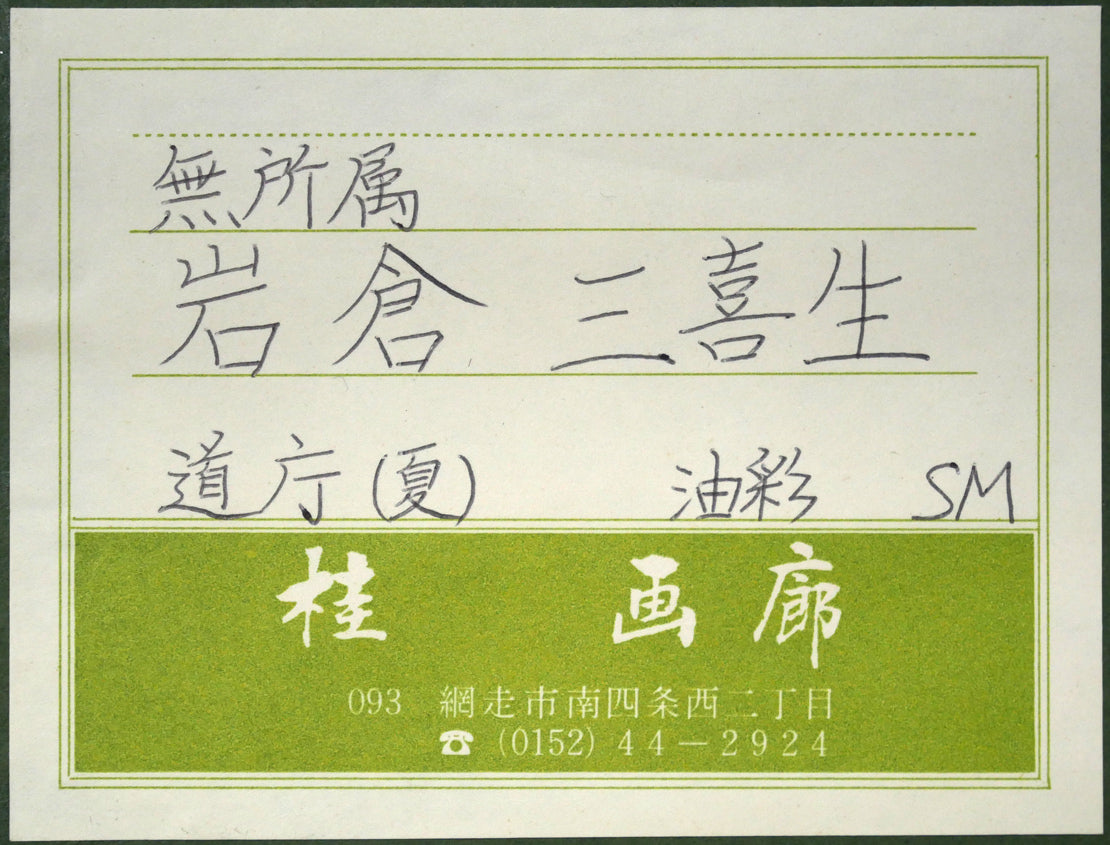 無所属
岩倉 三喜生
道庁(夏) 油彩 SM
桂 画廊
093 網走市南四条西二丁目
☎ (0152) 44-2924